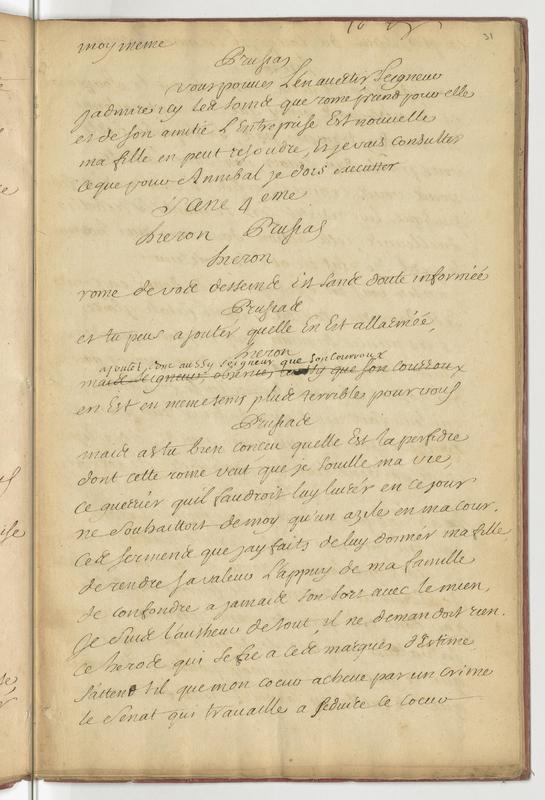 31
moy meme
Prusias
vous pouvés l'en avertir seigneur
j'admire icy les soins que rome prend pour elle
et de son amitié l'entreprise est nouvelle
ma fille en peut resoudre, et je vais consulter
ce que pour Annibal je dois executter
scene 4eme
hieron Prusias
hieron
rome de vos desseins est sans doute informéé
Prusias
et tu peus ajouter quelle en est allarméé,
hieron
ajoutés donc aussy seigneur que son courroux
mais seigneur observés aussy que son courroux
en est en meme tems plus terrible pour vous
Prusias
mais as tu bien conceu quelle est la perfidie
dont cette rome veut que je souille ma vie
ce guerrier quil faudroit luy livrér en ce jour
ne souhaittoit de moy qu'un azile en ma cour.
ces sermens que jay faits de luy donnér ma fille
de rendre sa valeur l'appuy de ma famille
de confondre a jamais son sort avec le mien,
je suis l'autheur de tout, il ne demandoit rien.
ce heros qui se fie a ces marques d'estime
s'attent il que mon coeur acheve par un crime
le senat qui travaille a seduire ce coeur